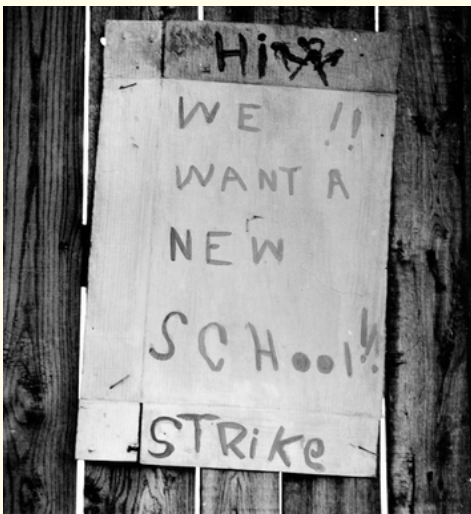 Hi
WE !!
WANT A
NEW
SCHOOl!!
STRiKe